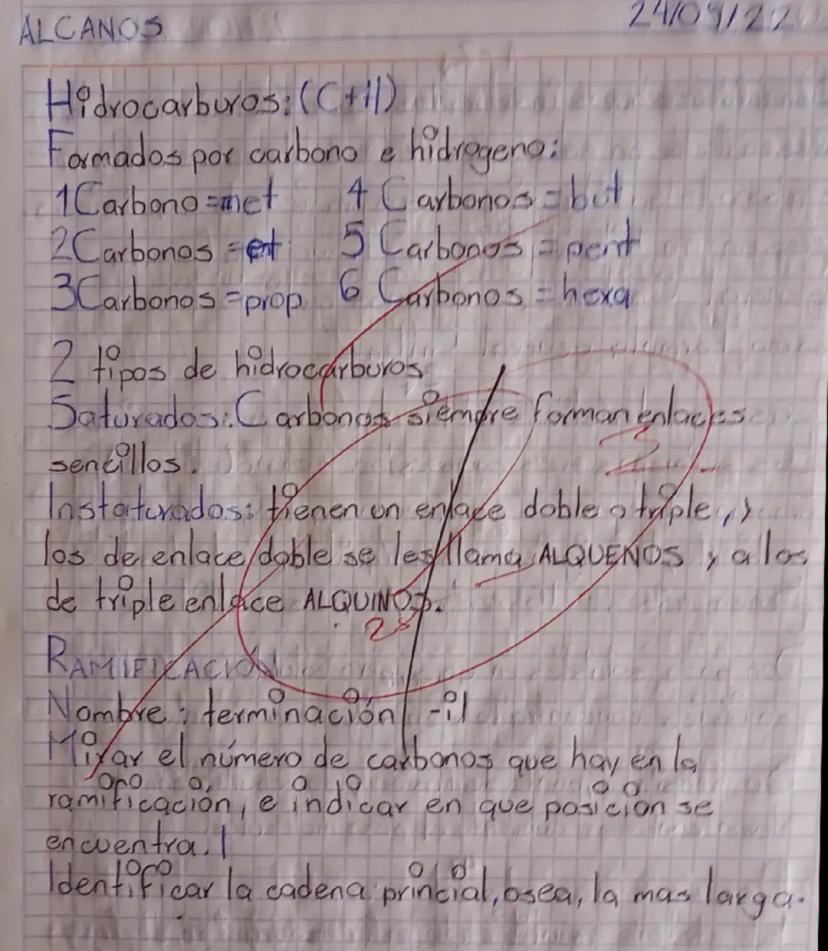 ALCANOS 24/09/22
Hidrocarburos: (C+H)
Formados por carbono e hidrogeno:
1 Carbono = met 4 Carbonos = but
2 Carbonos = et 5 Carbonos = pent
3 Carbonos = prop 6 Carbonos = hexa
2 tipos de hidrocarburos
Saturados: Carbonos siempre forman enlaces
sencillos.
Instaturados: tienen un enlace doble o triple, y
los de enlace doble se les llama ALQUENOS y a los
de triple enlace ALQUINOS.
RAMIFICACIÓN
Nombre: terminación -il
Mirar el número de carbonos que hay en la
ramificación, e indicar en que posición se
encuentra.
Identificar la cadena princial, osea, la mas larga.